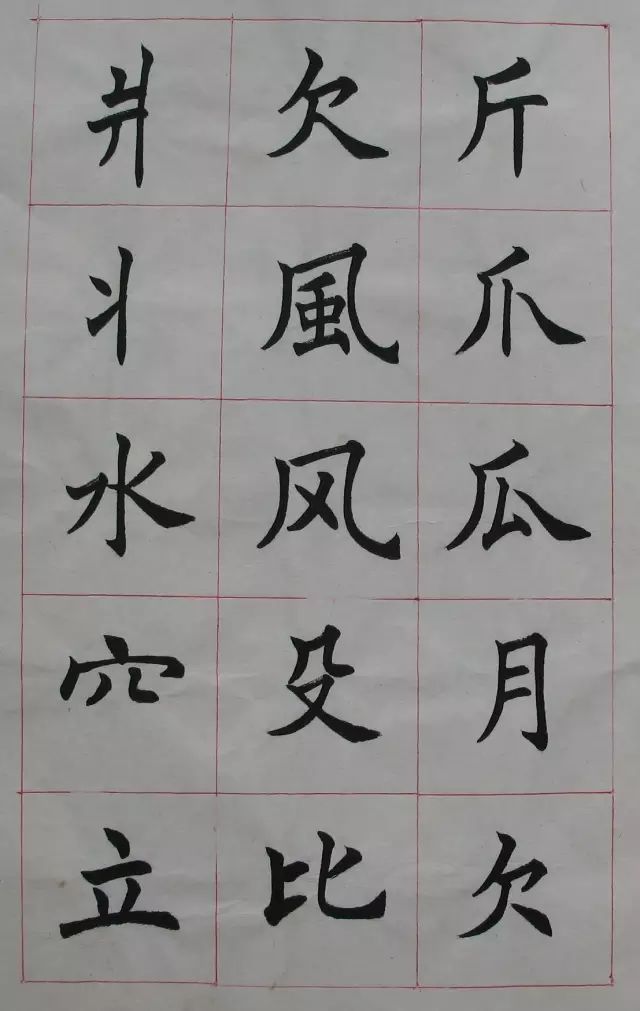 斤爪瓜月欠
欠風风殳比
爿丬水穴立